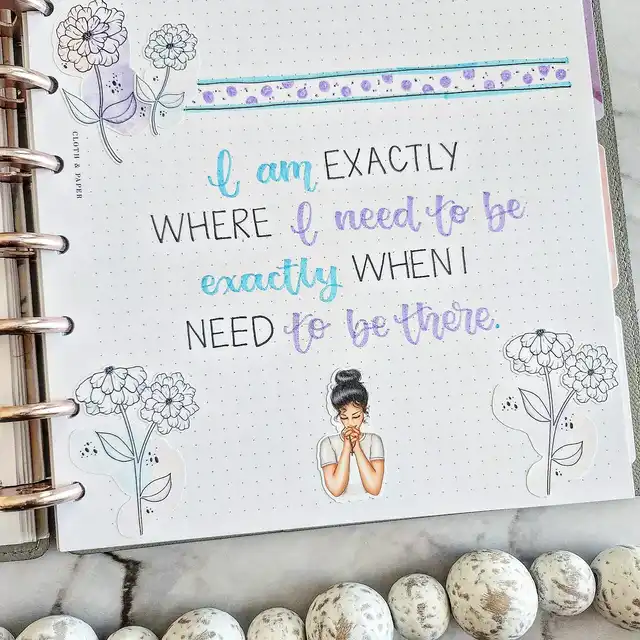 CLOTH & PAPER
I am EXACTLY
WHERE I need to be
exactly WHEN I
NEED to be there.